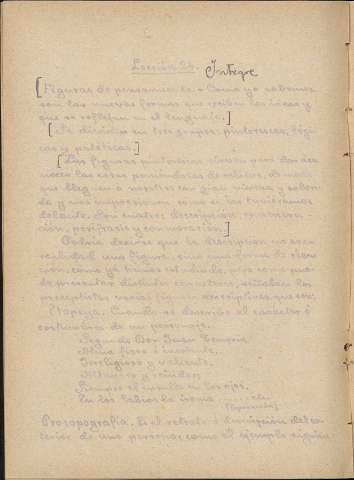 Lección 24. Integre
[Figuras de pensamiento. Como ya sabemos
son las nuevas formas que reciben las ideas y
que se reflejan en el lenguaje.]
[Se dividen en tres grupos: pintorescas, lógi-
cas y patéticas.]
[Las figuras pintorescas sirven para dar á co-
nocer las cosas de modo
que lleguen á nosotros con gran viveza y
y nos impresionen como si las tuviéramos
delante. Son cuatro: descripción, enumera-
ción, perífrasis y conmoración.]
Podría decirse que la descripción no es en
realidad una figura, sino una forma de
como ya hemos pero como pue-
de presentar distintos caracteres, señalan los
preceptistas varias figuras descriptivas que son:
Etopeya. Cuando se describe el carácter ó
costumbres de un personaje.
Segundo Don Juan Tenorio
Alma fiera é insolente,
Irreligioso y valiente
Altanero y reñidor;
Siempre el insulto en los ojos,
En los labios la ironía etc.
(Espronceda)
Prosopografía. Es el retrato ó descripción del ex-
terior de una persona; como el ejemplo siguien-